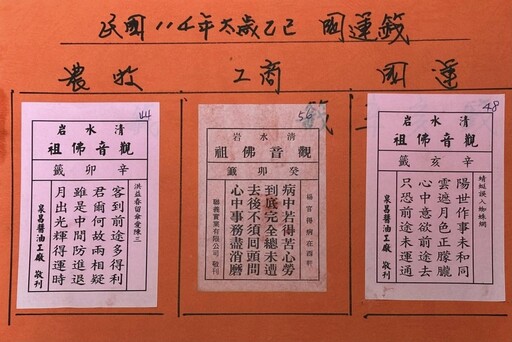 民國114年太歲乙巳 國運籤
農牧
工商
國運
44
清水岩
觀音佛祖
辛卯籤
洪益春留傘愛陳三
客到前途多得利
君爾何故兩相疑
雖是中間防進退
月出光輝得運時
泉昌醬油工廠 敬刊
56
籤
清水岩
觀音佛祖
癸卯籤
楊官得病在西軒
病中若得苦心勞
到底完全總未遭
去後不須回頭問
心中事務盡消磨
實業有限公司 敬刊
48
清水岩
觀音佛祖
辛亥籤
蜻蜓誤入蜘蛛網
陽世作事未和同
雲遮月色正朦朧
心中意欲前途去
只恐前途未運通
泉昌醬油工廠 敬刊